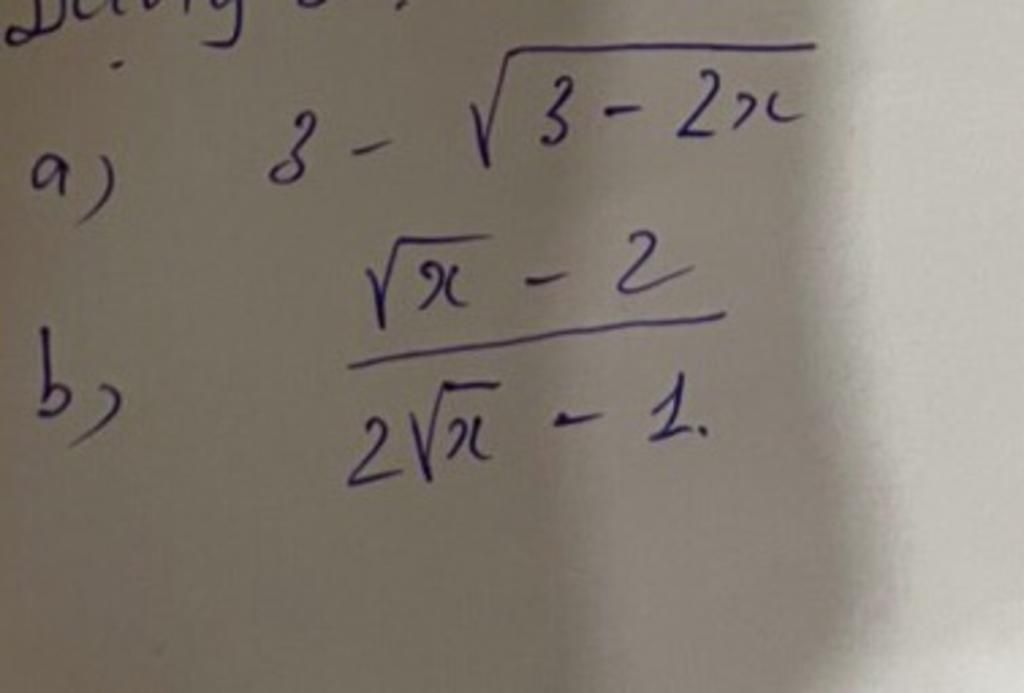 a) 3 - √(3 - 2x)
b) (√x - 2)/(2√x - 1).